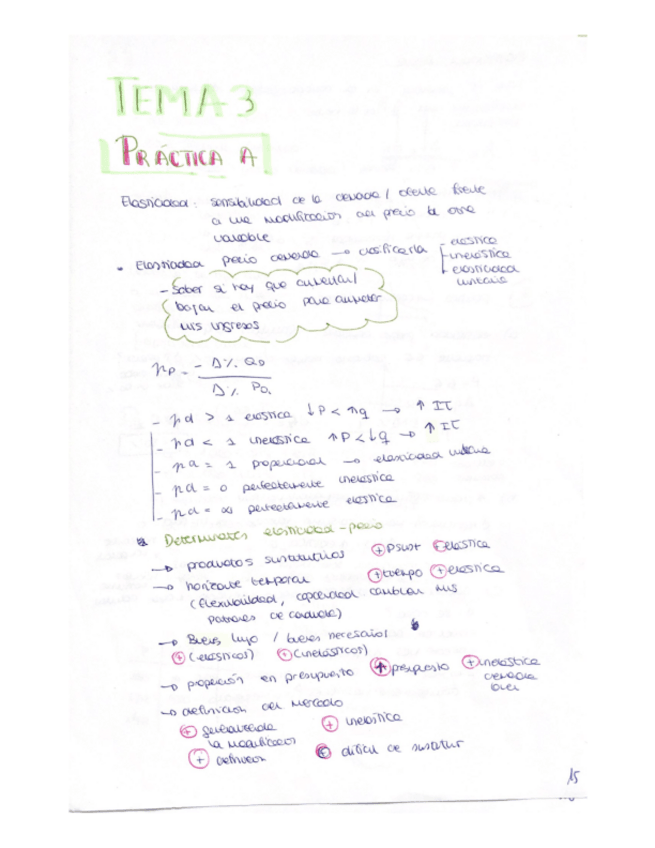 TEMA 3
PRÁCTICA A
Elasticidad: sensibilidad de la demada / oferta frente
a una modificacion del precio u otra
variable
• Elasticidad precio demanda → clasificarla - elastica
- inelástica
- elasticidad
unitaria
- Saber si hay que aumentar/
bajar el precio para aumentar
mis ingresos
np = - Δ% QD
Δ% PD.
- nd > 1 elastica ↓P < ↑q → ↑ IT
- nd < 1 inelástica ↑P < ↓q → ↑ IT
- nd = 1 proporcional → elasticidad unitaria
- nd = 0 perfectamente inelastica
- nd = ∞ perfectamente elastica
Determinantes elasticidad-precio
→ productos sustitutivos + Psust + elástica
→ horizonte temporal + tiempo + elastica
(flexibilidad, capacidad cambiar mis
patrones de conducta)
→ Bienes lujo / bienes necesarios
+ (elásticos) + (inelásticos)
→ proporción en presupuesto + presupuesto + inelastica
demanda
bien
→ definicion del mercado
+ generalizada + inelastica
la modificacion
+ definicion dificil de sustituir
15